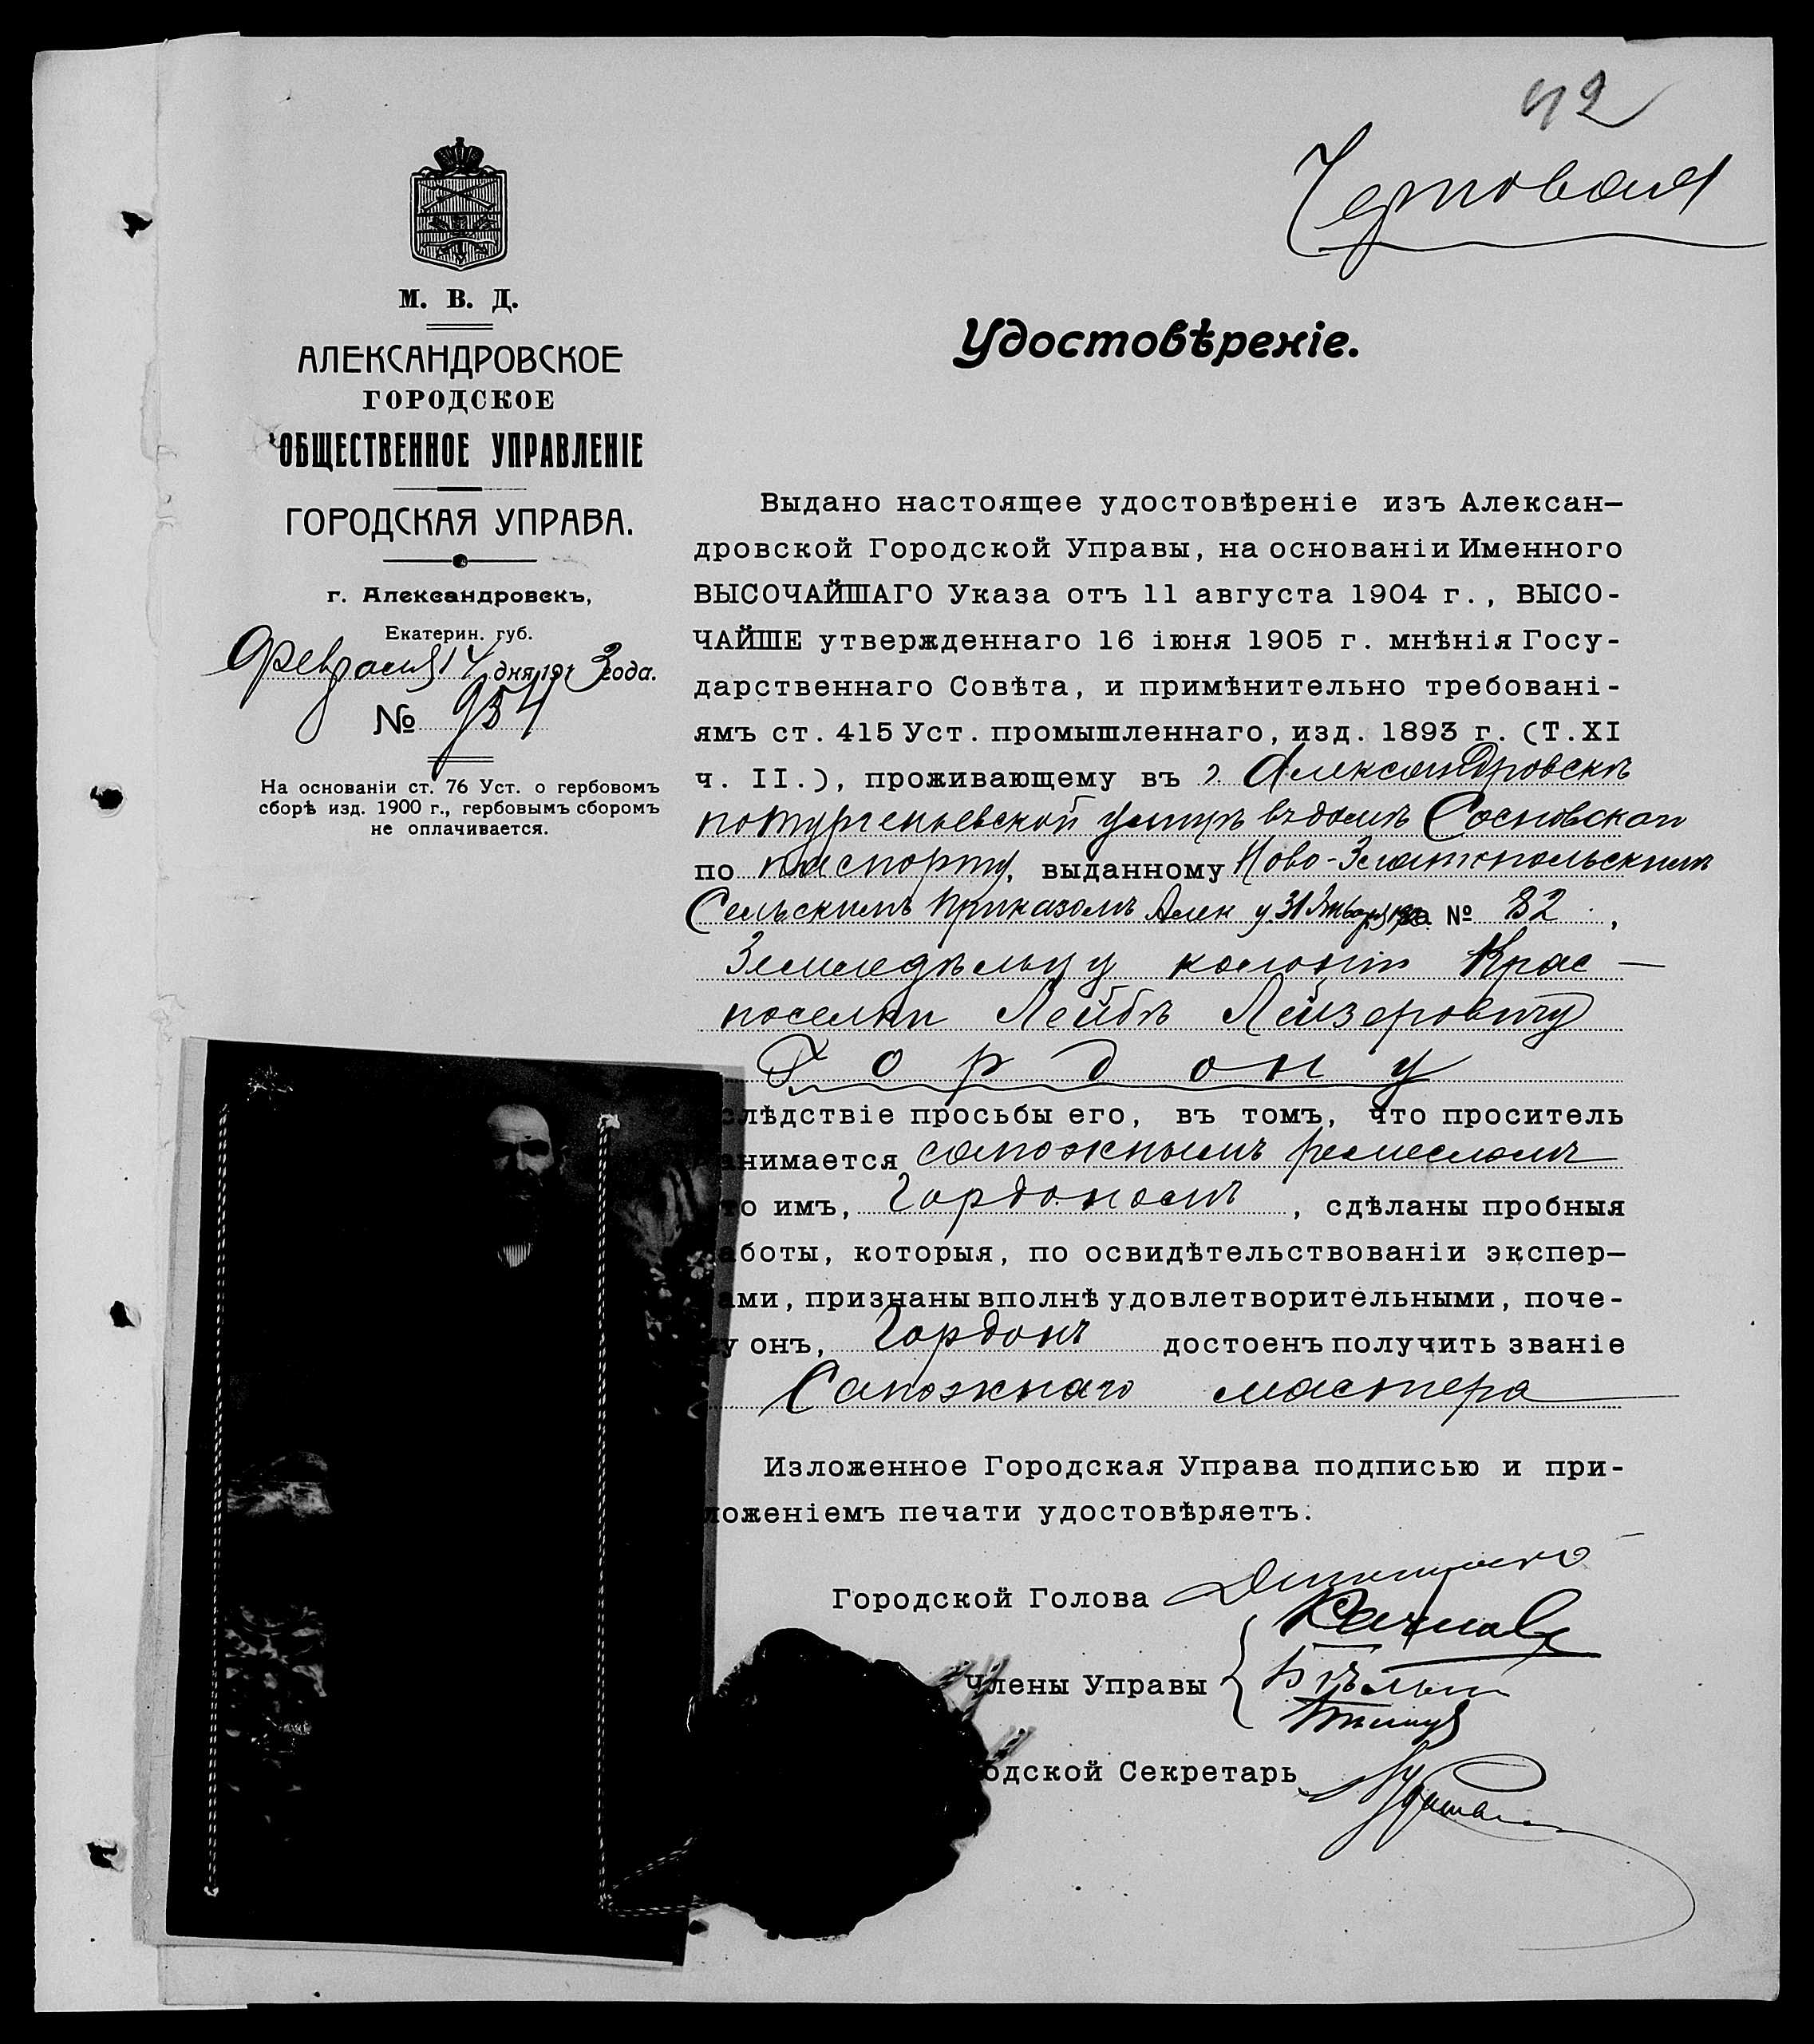 42
М. В. Д.
АЛЕКСАНДРОВСКОЕ
ГОРОДСКОЕ
ОБЩЕСТВЕННОЕ УПРАВЛЕНІЕ
ГОРОДСКАЯ УПРАВА.
г. Александровскъ,
Екатерин. губ.
Февраля 14 дня 1913 года.
№ 954
На основаніи ст. 76 Уст. о гербовомъ
сборѣ изд. 1900 г., гербовымъ сборомъ
не оплачивается.
Удостовѣреніе.
Выдано настоящее удостовѣреніе изъ Алексан-
дровской Городской Управы, на основаніи Именного
ВЫСОЧАЙШАГО Указа отъ 11 августа 1904 г., ВЫСО-
ЧАЙШЕ утвержденнаго 16 іюня 1905 г. мнѣнія Госу-
дарственнаго Совѣта, и примѣнительно требовані-
ямъ ст. 415 Уст. промышленнаго, изд. 1893 г. (Т.XI
ч. II.), проживающему въ г. Александровскѣ
по Тургеньевской улицѣ въ домѣ Сосновской
по паспорту, выданному Ново-Златопольскимъ
Сельскимъ Приказомъ Алек у. 31 Января за № 82,
Земледѣльцу колоніи Крас-
носелки Лейбѣ Лейзеровичу
Гордону
слѣдствіе просьбы его, въ томъ, что проситель
анимается сапожнымъ ремесломъ
то имъ, Гордономъ, сдѣланы пробныя
аботы, которыя, по освидѣтельствованіи экспер-
ами, признаны вполнѣ удовлетворительными, поче-
у онъ, Гордонъ достоенъ получить званіе
Сапожнаго мастера
Изложенное Городская Управа подписью и при-
ложеніемъ печати удостовѣряетъ.
Городской Голова
Члены Управы
одской Секретарь